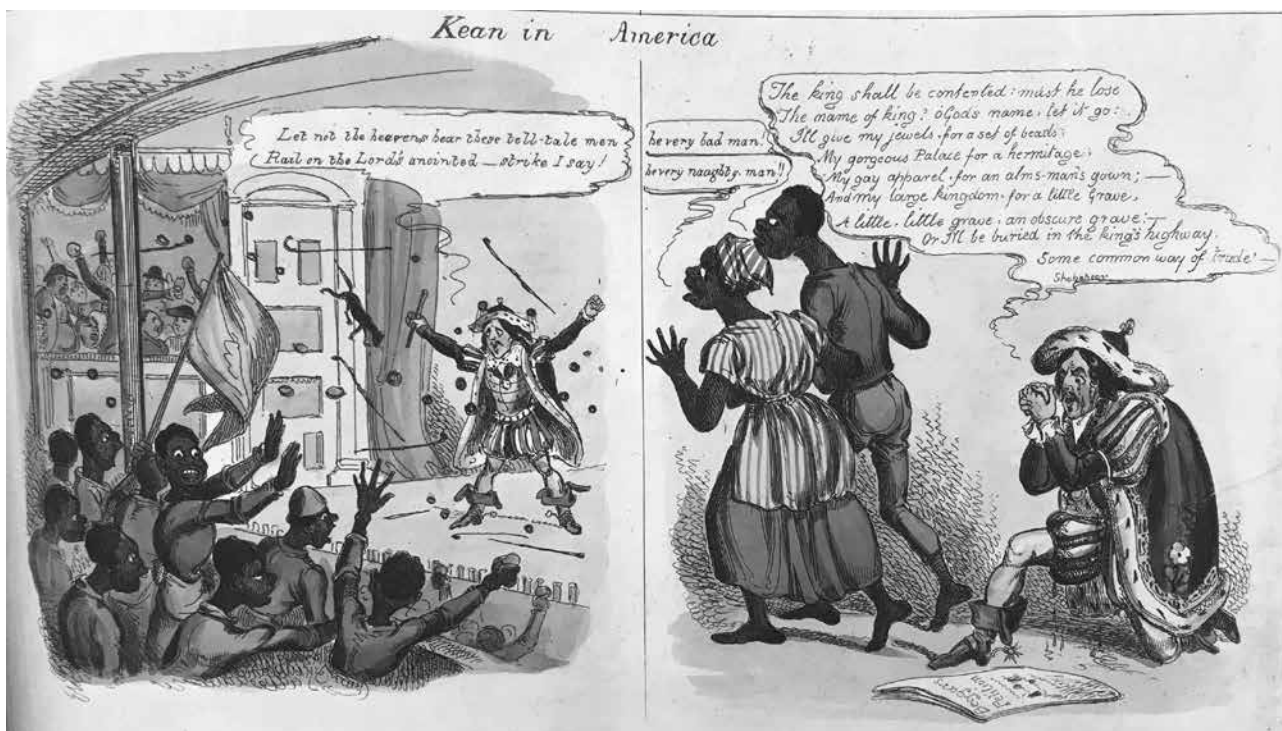 Kean in America
Let not the heavens hear these tell-tale men
Rail on the Lord's anointed — strike I say!
he very bad man!
he very naughty man!!
The king shall be contented: must he lose
The name of king? o'Gods name, let it go:
I'll give my jewels for a set of beads;
My gorgeous Palace for a hermitage;
My gay apparel for an alms-man's gown; —
And my large kingdom for a little Grave,
A little, little grave, an obscure grave: —
Or I'll be buried in the king's highway,
Some common way of trade! —
Shakspear
Beggars
Petition